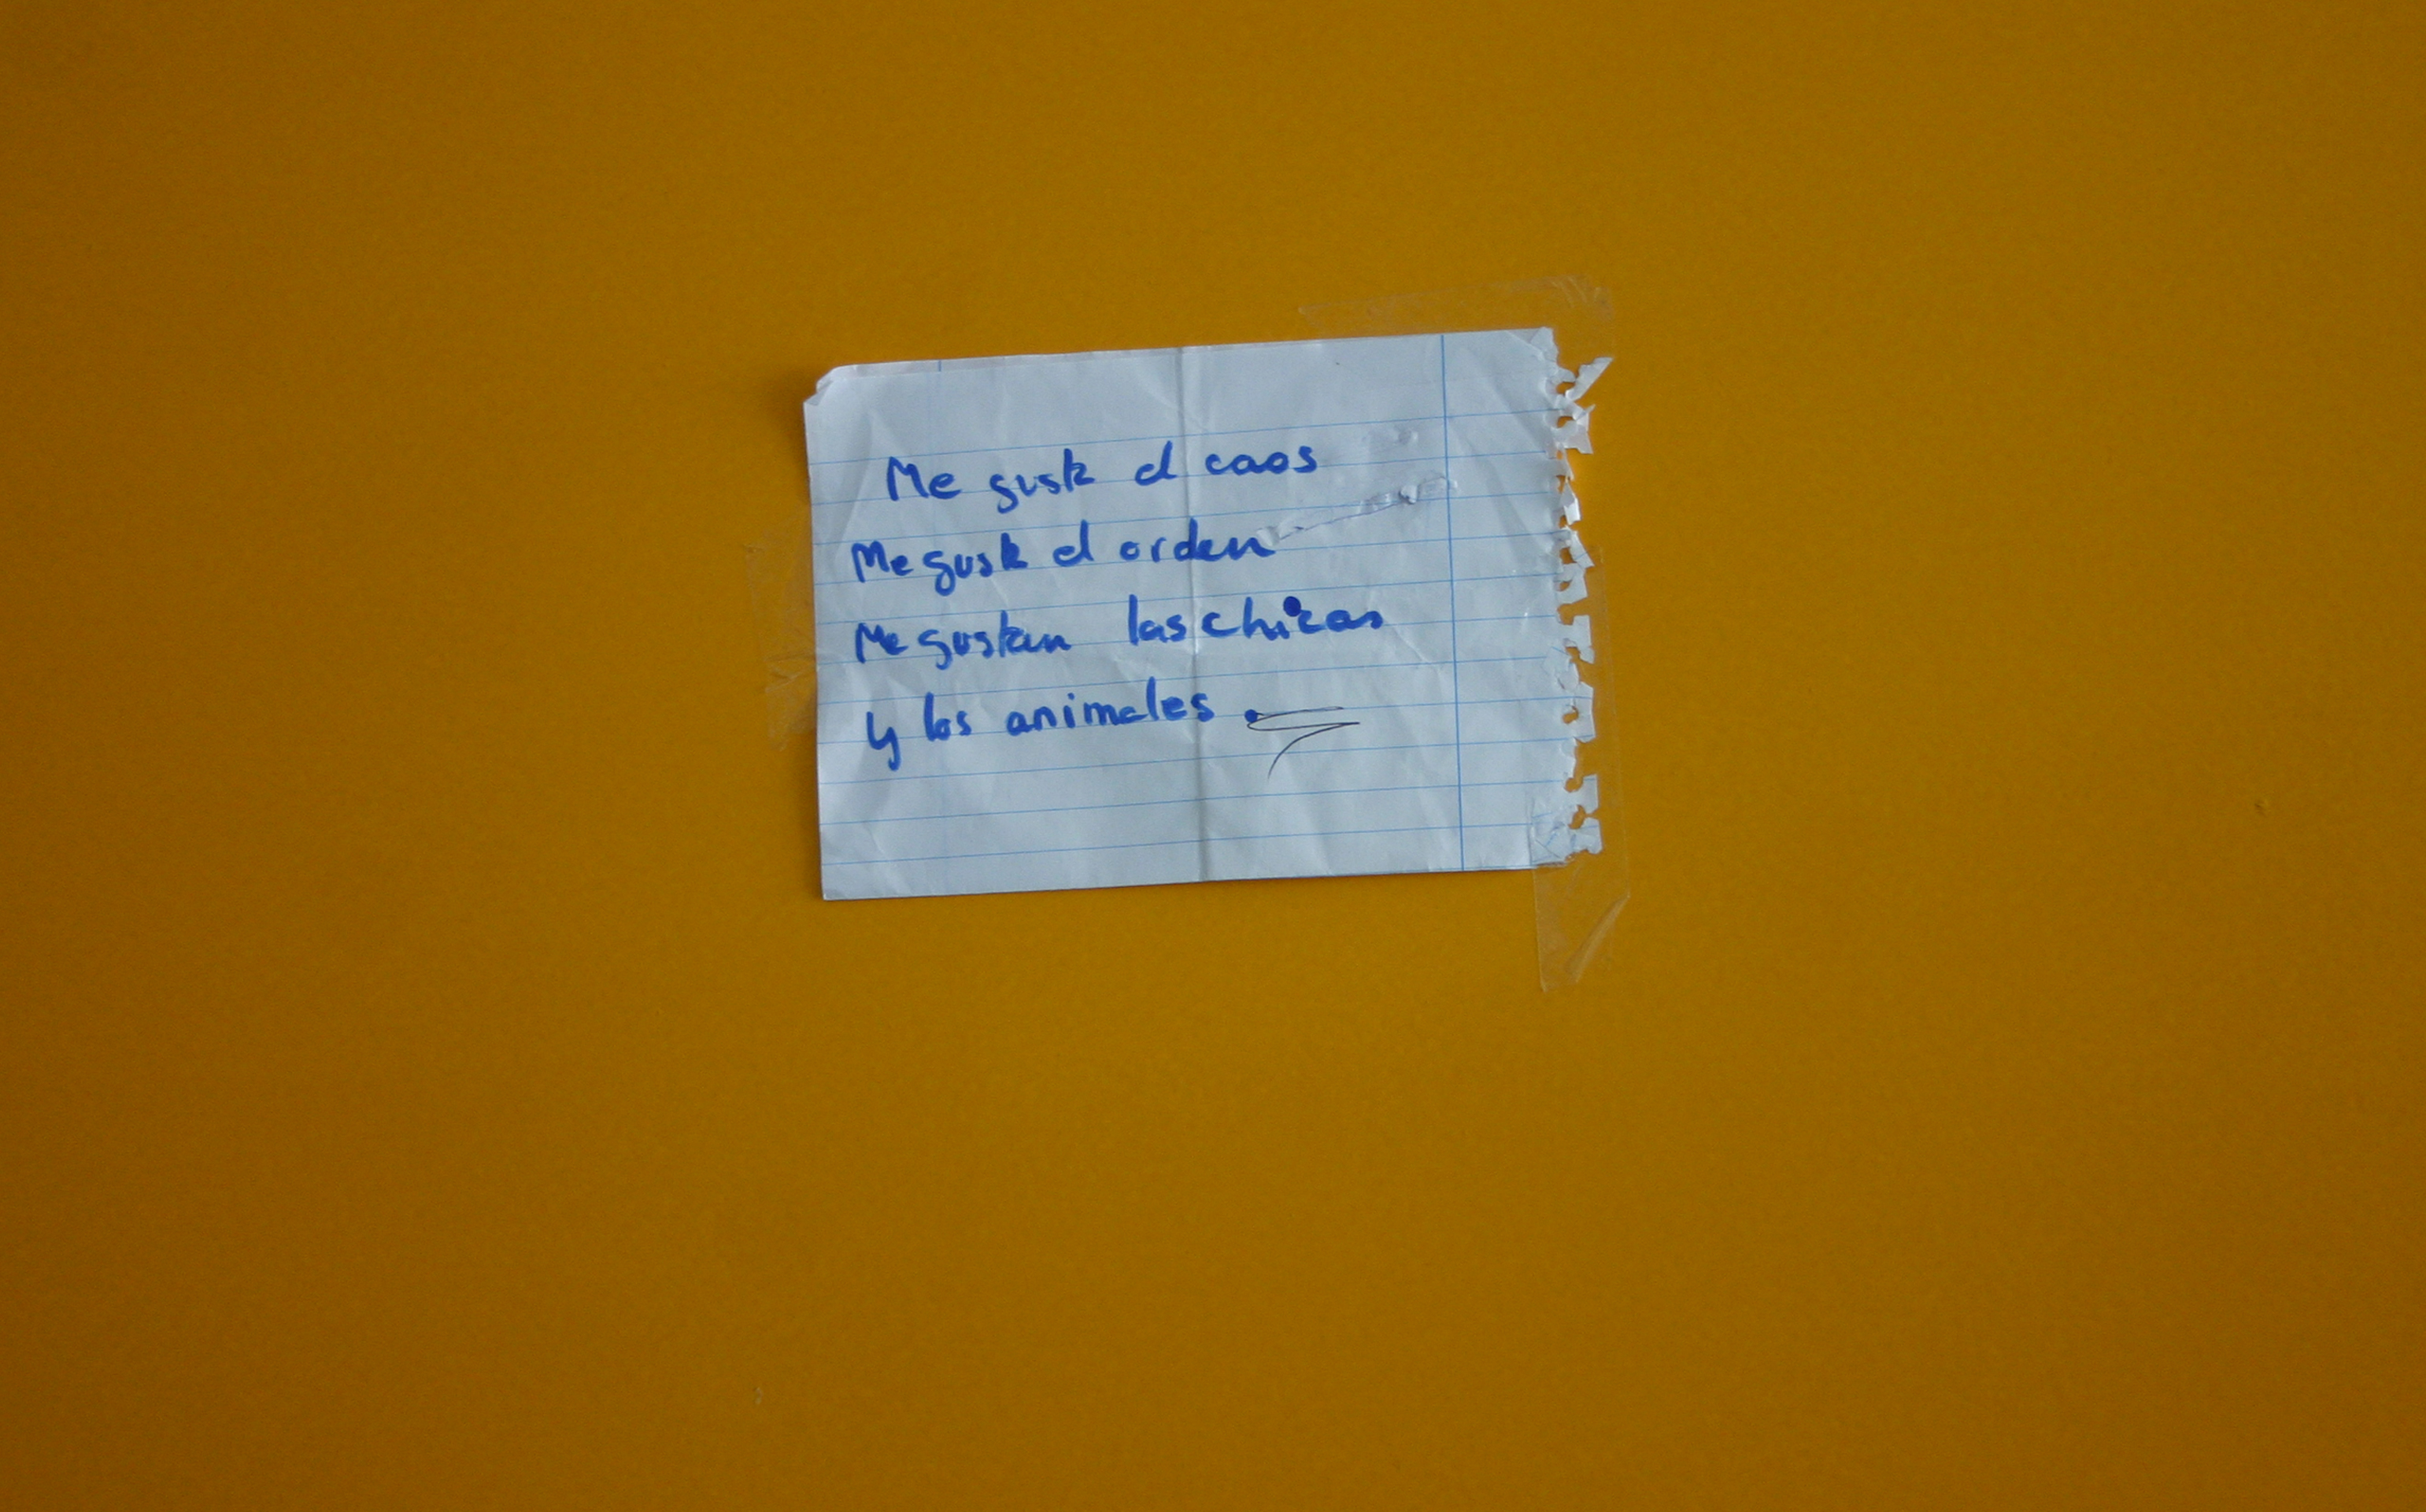 Me gusta el caos
Me gusta el orden
Me gustan las chicas
y los animales.